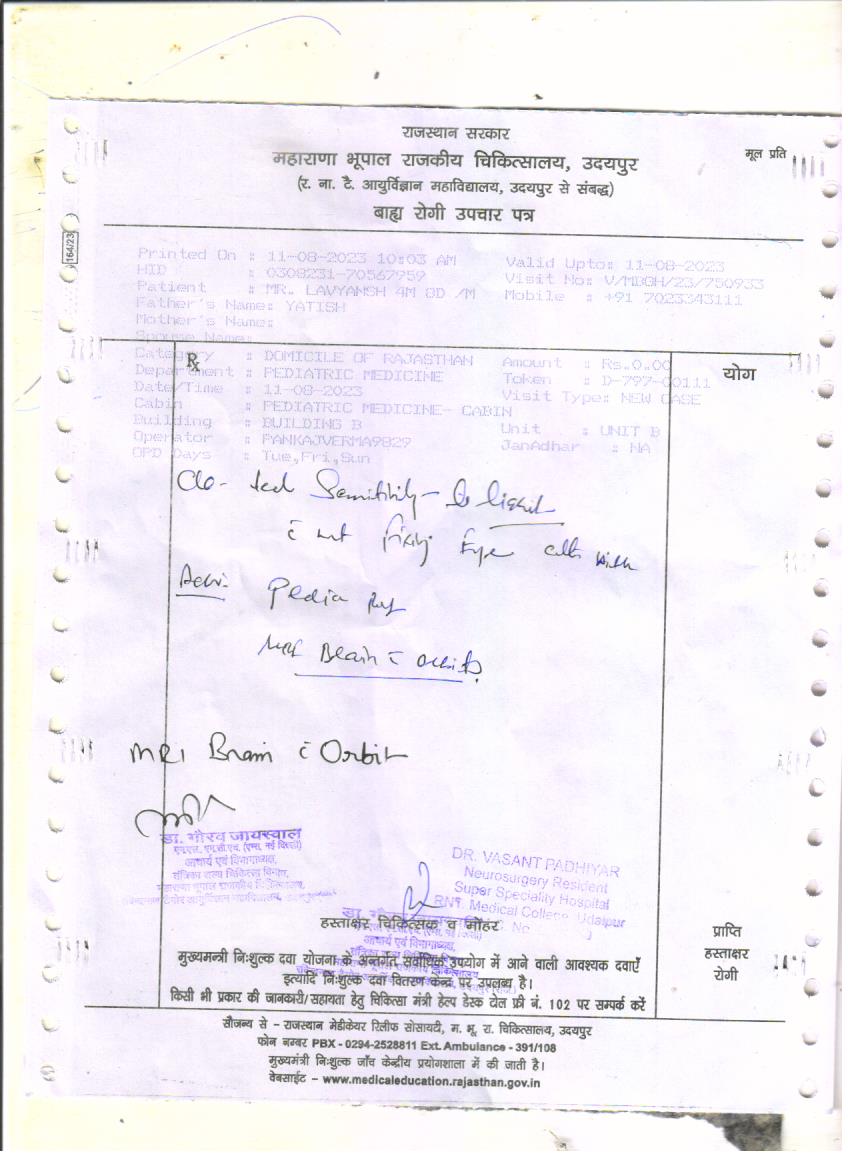 राजस्थान सरकार
महाराणा भूपाल राजकीय चिकित्सालय, उदयपुर
मूल प्रति
(र. ना. टै. आयुर्विज्ञान महाविद्यालय, उदयपुर से संबद्ध)
बाह्य रोगी उपचार पत्र
164/23
Printed On : 11-08-2023 10:03 AM Valid Upto: 11-08-2023
HID : 0308231-70567959 Visit No: V/MBGH/23/750933
Patient : MR. LAVYANSH 4M 8D /M Mobile : +91 7023343111
Father's Name: YATISH
Mother's Name:
Spouse Name:
Rx
योग
Category : DOMICILE OF RAJASTHAN Amount : Rs.0.00
Department : PEDIATRIC MEDICINE Token : D-797-00111
Date/Time : 11-08-2023 Visit Type: NEW CASE
Cabin : PEDIATRIC MEDICINE- CABIN
Building : BUILDING B Unit : UNIT B
Operator : PANKAJVERMA9829 JanAdhar : NA
OPD Days : Tue,Fri,Sun
C/o - Sensitivity - to light
c not fixing Eye with
Adv: Pedia Ref
MRI Brain c Orbits
MRI Brain c Orbit
डा. गौरव जायसवाल
आचार्य एवं विभागाध्यक्ष,
DR. VASANT PADHIYAR
Neurosurgery Resident
Super Speciality Hospital
RNT Medical College, Udaipur
हस्ताक्षर चिकित्सक व मोहर
आचार्य एवं विभागाध्यक्ष
प्राप्ति
हस्ताक्षर
रोगी
मुख्यमन्त्री निःशुल्क दवा योजना के अन्तर्गत सर्वाधिक उपयोग में आने वाली आवश्यक दवाएँ
इत्यादि निःशुल्क दवा वितरण केन्द्र पर उपलब्ध है।
किसी भी प्रकार की जानकारी/सहायता हेतु चिकित्सा मंत्री हेल्प डेस्क टोल फ्री नं. 102 पर सम्पर्क करें
सौजन्य से - राजस्थान मेडीकेयर रिलीफ सोसायटी, म. भू. रा. चिकित्सालय, उदयपुर
फोन नम्बर PBX - 0294-2528811 Ext. Ambulance - 391/108
मुख्यमंत्री निःशुल्क जाँच केन्द्रीय प्रयोगशाला में की जाती है।
वेबसाईट - www.medicaleducation.rajasthan.gov.in